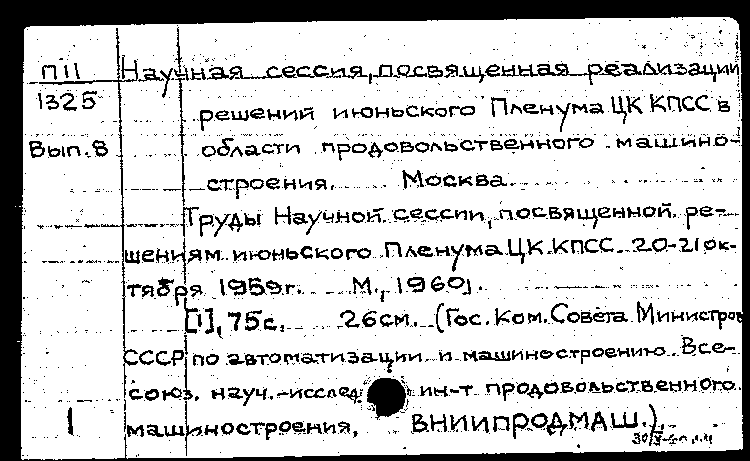 П11 Научная сессия, посвященная реализации
1325 решений июньского Пленума ЦК КПСС в
Вып. 8 области продовольственного машино-
строения. Москва.
Труды Научной сессии, посвященной ре-
шениям июньского Пленума ЦК КПСС. 20-21 ок-
тября 1959г. М., 1960.
[1], 75с. 26см. (Гос. Ком. Совета Министров
СССР по автоматизации и машиностроению. Все-
союз. науч.-исслед ин-т продовольственного
1 машиностроения, ВНИИПРОДМАШ.).